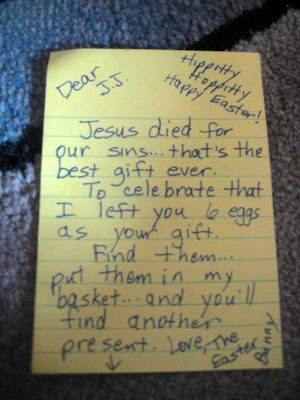 Dear
J.J.
Hippitty
Hoppitty
Happy Easter!
Jesus died for
our sins... that's the
best gift ever.
To celebrate that
I left you 6 eggs
as your gift.
Find them...
put them in my
basket... and you'll
find another
present. Love, The
Easter
Bunny